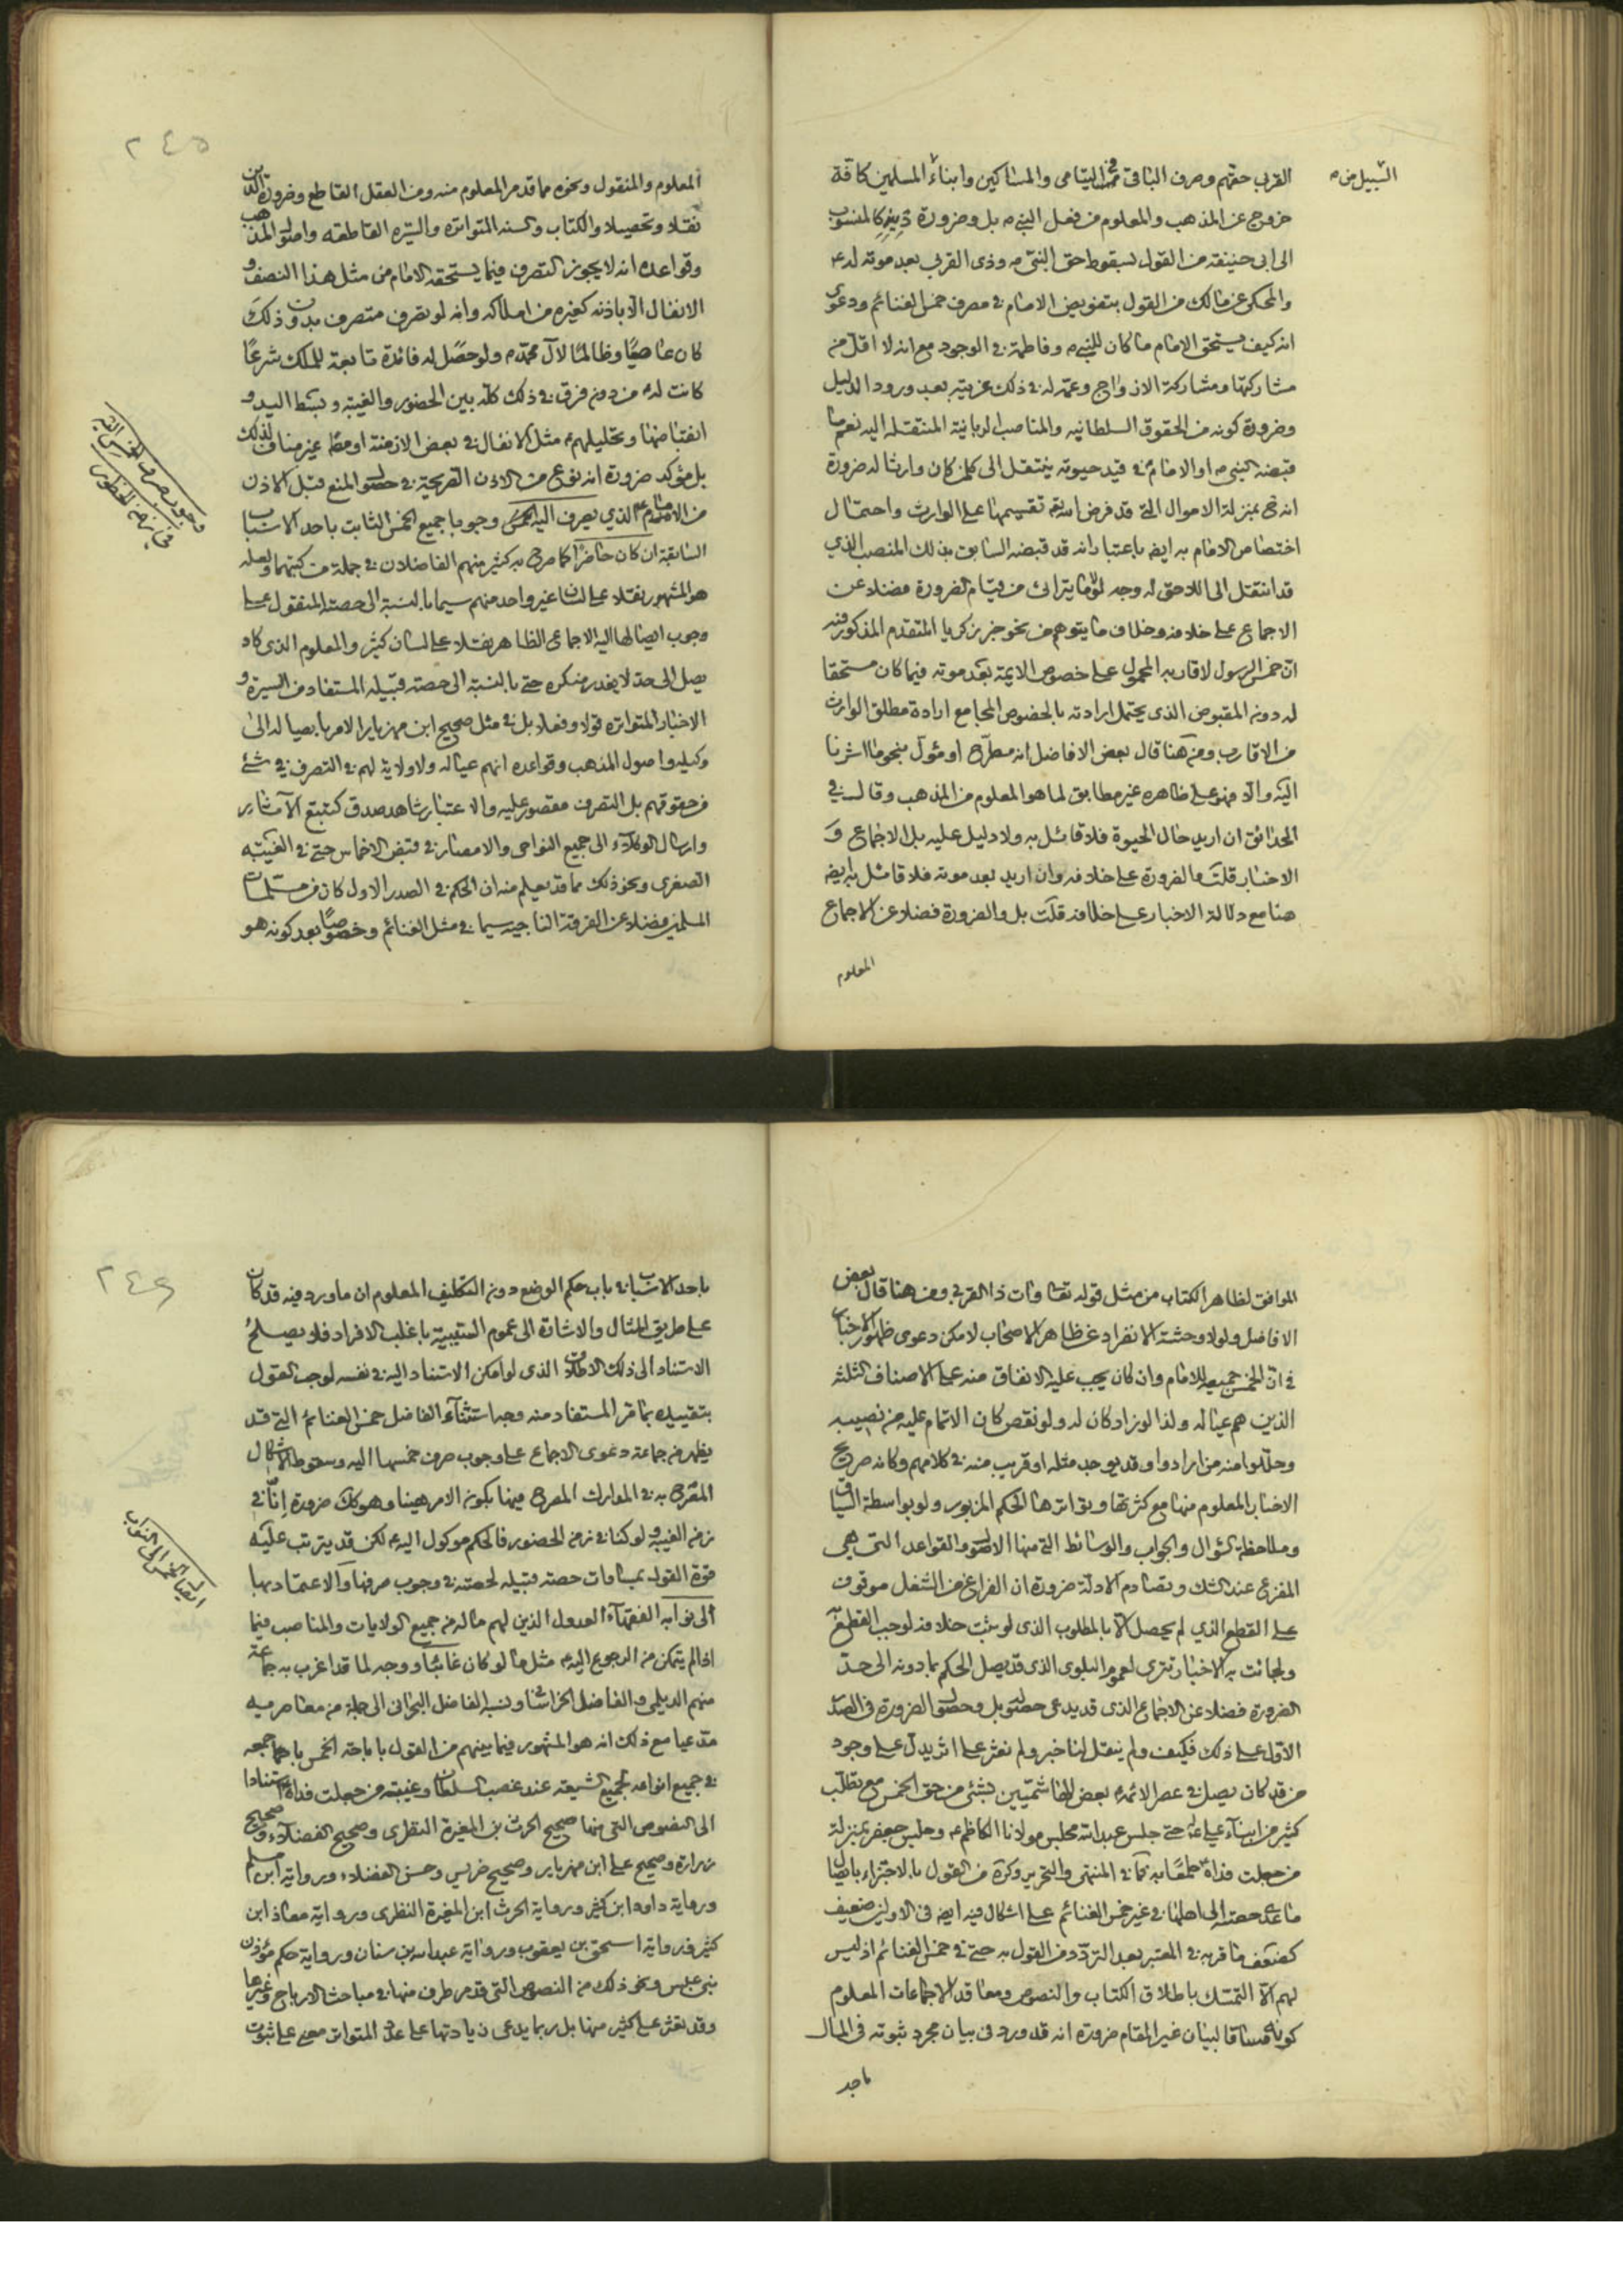 السبيل من
القربى حقهم وصرف الباقى في اليتامى والمساكين وابناء المسلمين كافة
خروج عن المذهب والمعلوم من فعل النبي ص بل وضرورة دينه كالمنسوب
الى ابى حنيفة من القول بسقوط حق النبي ص وذى القربى بعد موته له ع
والمحكى عن مالك من القول بتفويض الامام في مصرف خمس الغنائم ودعوى
انه كيف يستحق الامام ما كان للنبي ص وفاطمة في الوجود مع انه لا اقل من
مشاركتها ومشاركة الازواج وعمه له في ذلك غريبة بعد ورود الدليل
وضرورة كونه من الحقوق السلطانيه والمناصب الربانية المنتقلة اليه نعم ما
قبضه النبي ص او الامام ع في قيد حيوته ينتقل الى كل من كان وارثا له ضرورة
انه ح بمنزلة الاموال التي قد فرض الله تع تقسيمها على الوارث واحتمال
اختصاص الامام به ايض باعتبار انه قد قبضه السابق بذلك المنصب الذي
قد انتقل الى اللاحق له وجه لولا ما يترائ من قيام الضرورة فضلا عن
الاجماع على خلافه وخلاف ما يتوهم من نحو خبر زكريا المتقدم المذكور فيه
ان خمس الرسول لاقاربه المحمول على خصوص الايمة بعد موته فيما كان مستحقا
له دون المقبوض الذى يحتمل ارادته بالخصوص المجامع ارادة مطلق الوارث
من الاقارب ومن هنا قال بعض الافاضل انه مطرح او مؤول بنحو ما اشرنا
اليه والا فهو على ظاهره غير مطابق لما هو المعلوم من المذهب وقال في
الحدائق ان اريد حال الحيوة فلا قائل به ولا دليل عليه بل الاجماع و
الاخبار قلت والضرورة على خلافه وان اريد بعد موته فلا قائل به ايض
هنا مع دلالة الاخبار على خلافه قلت بل والضرورة فضلا عن الاجماع
المعلوم
٢٤٥
المعلوم والمنقول ونحوه مما قدم المعلوم منه ومن العقل القاطع وضرورة الدين
نقلا وتحصيلا والكتاب والسنه المتواترة والسيره القاطعه واصول المذهب
وقواعده انه لا يجوز التصرف فيما يستحقه الامام من مثل هذا النصف و
الانفال الا باذنه كغيره من املاكه وانه لو تصرف متصرف بدون ذلك
كان عاصيا وظالما لآل محمد ص ولو حصل له فائدة تابعة للملك شرعا
كانت له ع من دون فرق في ذلك كله بين الحضور والغيبة وبسط اليد و
انقباضها وتحليلهم ع مثل الانفال في بعض الازمنة او مط غير مناف لذلك
بل مؤكد ضرورة انه نوع من الاذن الصريحة في حصول المنع قبل الاذن
من الامام ع الذي يصرف اليه الخمس وجوبا جميع الخمس الثابت باحد الاسباب
السابقة ان كان حاضرا كما صرح به كثير منهم الفاضلان في جملة من كتبهما ولعله
هو المشهور نقلا على لسان غير واحد منهم سيما بالنسبة الى حصته المنقول على
وجوب ايصالها اليه الاجماعى الظاهر نقلا على لسان كثير والمعلوم الذى كاد
يصل الى حد لا يعذر منكره حتى بالنسبة الى حصة قبيله المستفاد من السيرة و
الاخبار المتواترة قولا وفعلا بل في مثل صحيح ابن مهزيار الامر بايصاله الى
وكيله واصول المذهب وقواعده انهم عياله ولا ولاية لهم في التصرف في شئ
من حقوقهم بل التصرف مقصور عليه والاعتبار شاهد صدق كتتبع الآثار
وارسال الوكلاء الى جميع النواحى والامصار في قبض الاخماس حتى في الغيبة
الصغرى ونحو ذلك مما قد يعلم منه ان الحكم في الصدر الاول كان من مسلمات
المسلمين فضلا عن الفرقة الناجية سيما في مثل الغنائم وخصوصا بعد كونه هو
وجوب صرف الخمس اليه
في زمن الحضور
الموافق لظاهر الكتاب من مثل قوله تعا وآت ذا القربى ومن هنا قال بعض
الافاضل ولولا وحشة الانفراد عن ظاهر الاصحاب لامكن دعوى ظهور الاخبار
في ان الخمس جميعه للامام وان كان يجب عليه الانفاق منه على الاصناف الثلثة
الذين هم عياله ولذا لو زاد كان له ولو نقص كان الاتمام عليه من نصيبه
وحللوا منه من ارادوا وقد يوجد مثله او قريب منه في كلامهم وكانه صريح
الاخبار المعلوم منها مع كثرتها وتواترها الحكم المزبور ولو بواسطة السياق
وملاحظة السؤال والجواب والوسائط التي منها الاصول والقواعد التي هي
المفزع عند الشك وتصادم الادلة ضرورة ان الفراغ من الشغل موقوف
على القطع الذي لم يحصل الا بالمطلوب الذى لو ثبت خلافه لوجب القطع به
ولجائت به الاخبار تترى لعموم البلوى الذى قد يصل الحكم بما دونه الى حد
الضرورة فضلا عن الاجماع الذى قد يدعى حصوله بل وحصول الضرورة في الصدر
الاول على ذلك فكيف ولم ينقل لنا خبر ولم نعثر على اثر يدل على وجود
من قد كان يصل في عصر الائمة ع بعض الهاشميين بشئ من حق الخمس مع تطلب
كثير من ابناء على ع حتى جلس عبد الله مجلس مولانا الكاظم ع وجلس جعفر بمنزلة
من جعلت فداه طمعا به كما في المنتهى والتحرير وكره من القول بالاجتزاء بايصال
ما عدى حصته الى اهلها في غير خمس الغنائم على اشكال فيه ايض في الاولين ضعيف
كضعف ما قربه في المعتبر بعد التردد من القول به حتى في خمس الغنائم اذ ليس
لهم الا التمسك باطلاق الكتاب والنصوص ومعاقد الاجماعات المعلوم
كونها مساقا لبيان غير المقام ضرورة انه قد ورد في بيان مجرد ثبوته في المال
باحد
٢٤٦
باحد الاسباب في باب حكم الوضع دون التكليف المعلوم ان ما ورد فيه قد كان
على طريق المثال والاشارة الى عموم السببية باغلب الافراد فلا يصلح
الاستناد الى ذلك الاطلاق الذى لو امكن الاستناد اليه في نفسه لوجب القول
بتقييده بما مر المستفاد منه وجه استثناء الفاضل خمس الغنائم التي قد
يظهر من جماعة دعوى الاجماع على وجوب صرف خمسها اليه وسقوط الاشكال
المصرح به في المدارك المصرح فيها بكون الامر هينا وهو كك ضرورة انا في
زمن الغيبة ولو كنا في زمن الحضور فالحكم موكول اليه ع لكن قد يترتب عليه
قوة القول بمساوات حصة قبيله لحصته في وجوب صرفها والاعتماد بها
الى نوابه الفقهاء العدول الذين لهم ماله من جميع الولايات والمناصب فيما
اذا لم يتمكن من الرجوع اليه ع مثل ما لو كان غائبا ووجه لما قد اغرب به جماعة
منهم الديلمى والفاضل الخراسانى ونسبه الفاضل البحرانى الى جملة من معاصريه
مدعيا مع ذلك انه هو المشهور فيما بينهم من القول باباحة الخمس باجمعه
في جميع انواعه لجميع الشيعة عند غصب السلطان وغيبته من جعلت فداه استنادا
الى النصوص التي منها صحيح الحرث بن المغيرة النظرى وصحيح الفضلاء وصحيح
زرارة وصحيح على ابن مهزيار وصحيح ضريس وحسن الفضلاء ورواية ابن مسلم
ورواية داود ابن كثير ورواية الحرث ابن المغيرة النظرى ورواية معاذ ابن
كثير ورواية اسحق بن يعقوب ورواية عبد الله بن سنان ورواية حكم مؤذن
بنى عبس ونحو ذلك من النصوص التي قدم طرف منها في مباحث الارباح وغيرها
وقد نعثر على كثير منها بل ربما يدعى زيادتها على عدد المتواتر معنى على ثبوت
ايصال الخمس الى النواب